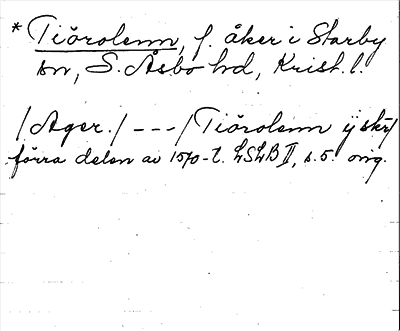 * Tiörolenn, f. åker i Starby
sn, S. Åsbo hd, Krist. l.
/Ager./ --- /Tiörolenn ij skr/
förra delen av 1570-t. LSLB II, s. 5. orig.